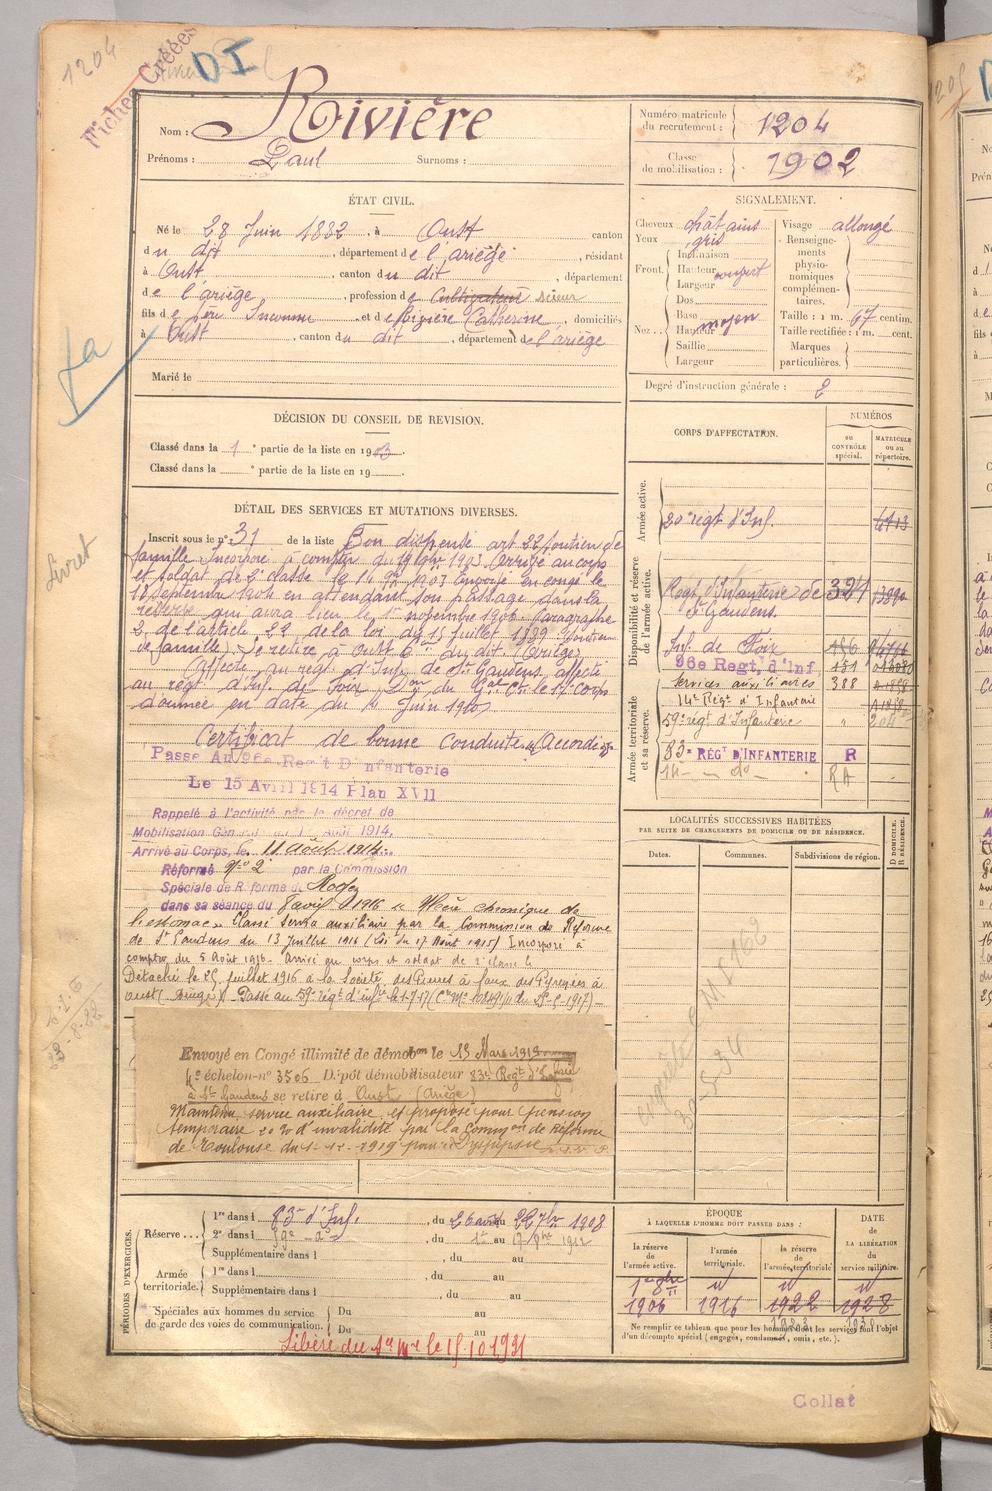 1204
Fiches Créées
DI
Nom : Rivière
Prénoms : Paul Surnoms :
Numéro matricule du recrutement : 1204
Classe de mobilisation : 1902
ÉTAT CIVIL.
Né le 28 Juin 1882, à Oust canton
du dit, département de l'ariège, résidant
à Oust, canton du dit, département
de l'ariège, profession de Cultivateur scieur
fils de père Inconnu et de Rivière Catherine, domiciliés
à Oust, canton du dit, département de l'ariège
Marié le
SIGNALEMENT.
Cheveux châtains
Yeux gris
Front. Inclinaison
Hauteur
Largeur
Nez... Dos
Base moyen
Hauteur
Saillie
Largeur
Visage allongé
Renseignements physionomiques complémentaires.
Taille : 1 m. 67 centim.
Taille rectifiée : 1 m. cent.
Marques particulières.
Degré d'instruction générale : 2
DÉCISION DU CONSEIL DE REVISION.
Classé dans la 1 e partie de la liste en 1903.
Classé dans la e partie de la liste en 19 .
DÉTAIL DES SERVICES ET MUTATIONS DIVERSES.
Inscrit sous le n° 31 de la liste Bon dispensé art 22 soutien de
famille Incorporé à compter du 14 9bre 1903 Arrivé au corps
et soldat de 2e classe le 14 9bre 1903 envoyé en congé le
18 Septembre 1904 en attendant son passage dans la
réserve qui aura lieu le 1er novembre 1906 paragraphe
2 de l'article 22 de la loi du 15 juillet 1889 (soutien
de famille) Se retire à Oust con du dit (Ariège)
Affecté au régt d'Inf. de St Gaudens affecté
au régt d'Inf. de Foix Don du Gal Ct le 17e Corps
donnée en date du 4 Juin 1910
Certificat de bonne conduite Accordé
Passé Au 96e Regt D'Infanterie
Le 15 Avril 1914 Plan XVII
Rappelé à l'activité par le décret de
Mobilisation Générale du 1er Août 1914.
Arrivé au Corps, le 11 Août 1914.
Réformé n° 2 par la Commission
Spéciale de Réforme de Rodez
dans sa séance du 8 avril 1916 chronique de
l'estomac. Classé service auxiliaire par la Commission de Réforme
de St Gaudens du 13 Juillet 1916 (Loi du 17 Août 1915) Incorporé à
compter du 5 Août 1916. Arrivé au corps et soldat de 2e classe le
Détaché le 25 juillet 1916 à la Société des Pierres à faux des Pyrénées à
Oust (Ariège) Passé au 59e régt d'infrie le 1-7-17
Envoyé en Congé illimité de démobon le 15 Mars 1919
4e échelon-n° 3506 Dépôt démobilisateur 83e Regt d'Infrie
à St Gaudens se retire à Oust (Ariège)
Maintenu service auxiliaire et proposé pour pension
temporaire 20 % d'invalidité par la Common de Réforme
de Toulouse du 1919 pour Dyspepsie
CORPS D'AFFECTATION.
NUMÉROS
AU CONTRÔLE spécial.
MATRICULE ou au répertoire.
Armée active.
20e régt d'Inf.
Disponibilité et réserve de l'armée active.
Régt d'Infanterie de St Gaudens. 321
Inf. de Foix
96e Regt, d'Inf
Armée territoriale et sa réserve.
Services auxiliaires 388
14e Régt d'Infanterie
59e régt d'Infanterie
83e RÉGT D'INFANTERIE R
14e - do - RA
LOCALITÉS SUCCESSIVES HABITÉES
PAR SUITE DE CHANGEMENTS DE DOMICILE OU DE RÉSIDENCE.
Dates. Communes. Subdivisions de région. D DOMICILE. R RÉSIDENCE.
Livret
PÉRIODES D'EXERCICES.
Réserve... 1re dans l 83e d'Inf., du 26 août au 22 7bre 1908
2e dans l , du 1er au 17 9bre 1912
Supplémentaire dans l , du au
Armée territoriale. 1re dans l , du au
Supplémentaire dans l , du au
Spéciales aux hommes du service de garde des voies de communication. Du au
Du au
Libéré du Sce Mre le 15.10.1931
ÉPOQUE
À LAQUELLE L'HOMME DOIT PASSER DANS :
la réserve de l'armée active.
l'armée territoriale.
la réserve de l'armée territoriale
DATE DE LA LIBÉRATION du service militaire.
1er 9bre 1906
1916
1922
1928
Ne remplir ce tableau que pour les hommes dont les services font l'objet
d'un décompte spécial (engagés, condamnés, omis, etc.).
Collat